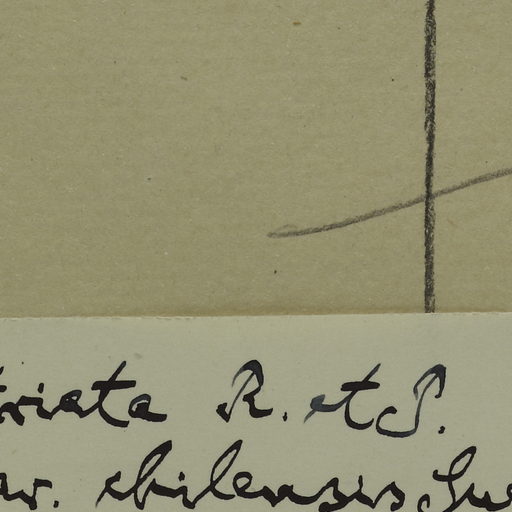 triata R. et P.
ar. chilensis